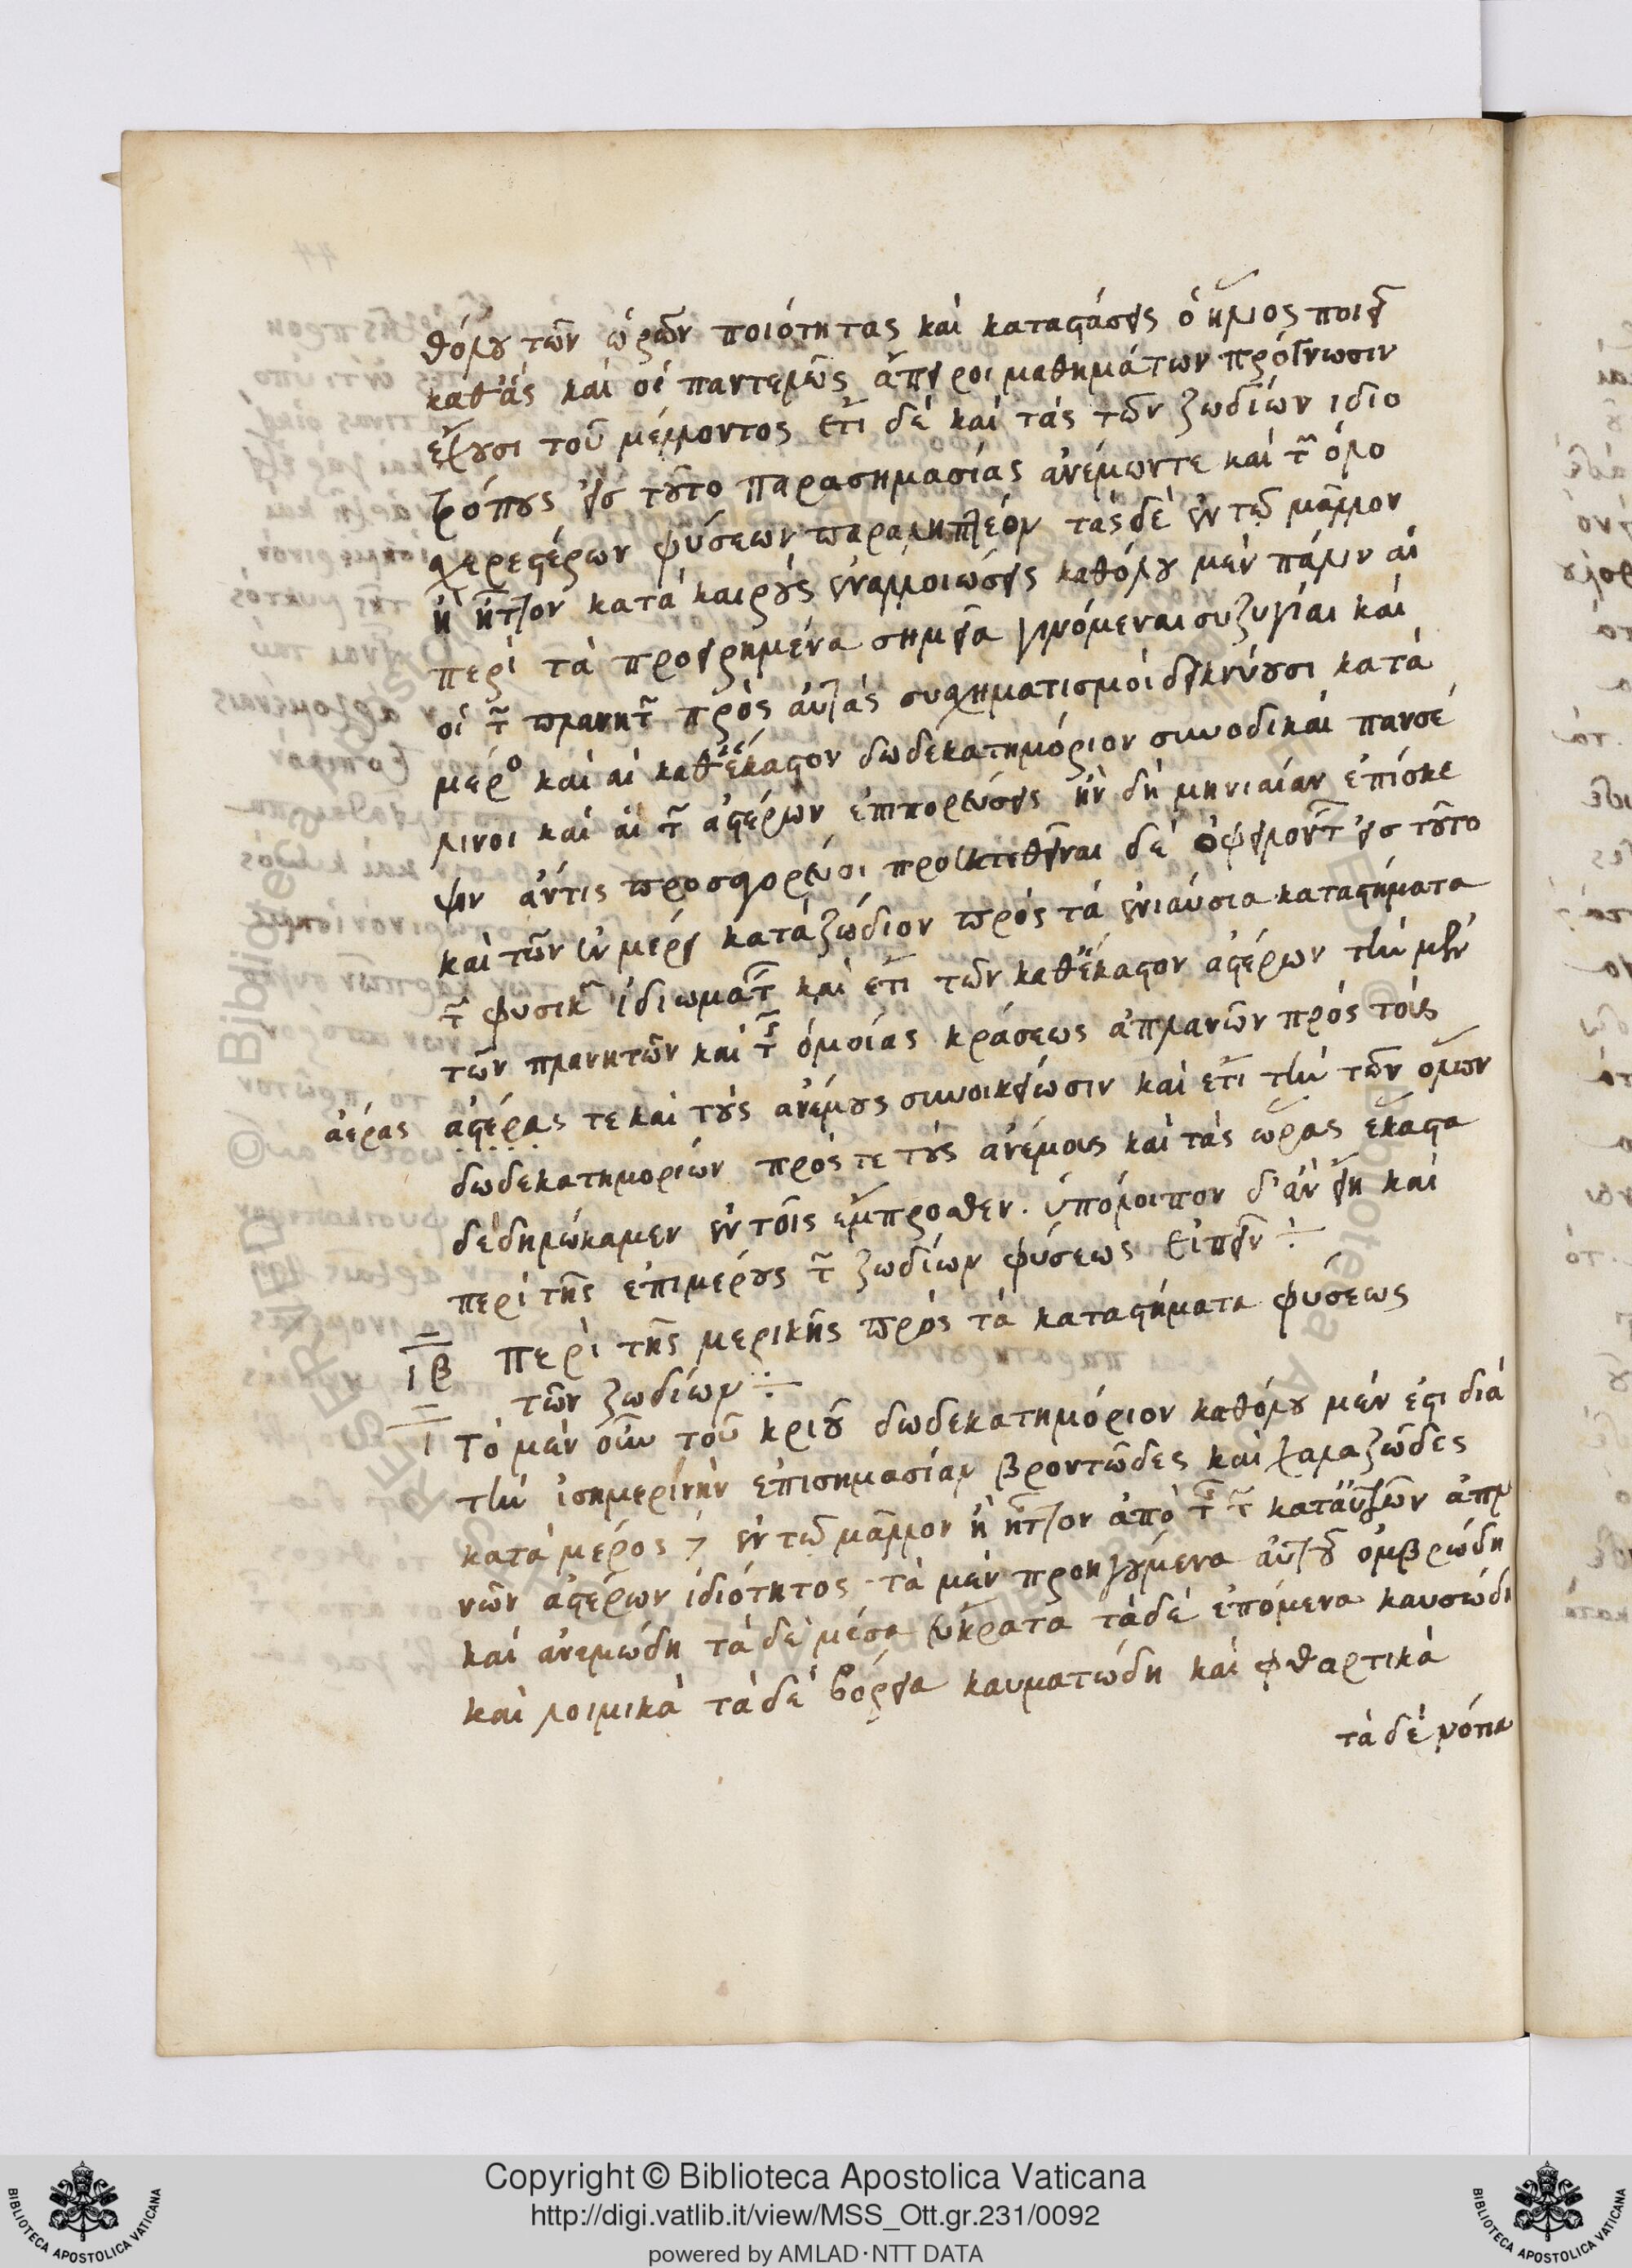 θόλου τῶν ὡρῶν ποιότητας καὶ καταστάσεις ὁ ἥλιος ποιεῖ
καθ' ἃς καὶ οἱ παντελῶς ἄπειροι μαθημάτων πρόγνωσιν
ἔχουσι τοῦ μέλλοντος ἔτι δὲ καὶ τὰς τῶν ζωδίων ιδιο
τρόπους εἰς τοῦτο παρασημασίας ἀνέμων τε καὶ τῶν ὁλο
σχερεστέρων φύσεων παραληπτέον τὰς δὲ ἐν τῷ μᾶλλον
ἢ ἧττον κατὰ καιροὺς ἐναλλοιώσεις καθόλου μὲν πάλιν αἱ
περὶ τὰ προειρημένα σημεῖα γινόμεναι συζυγίαι καὶ
οἱ τῶν πλανητῶν πρὸς αὐτὰς συσχηματισμοὶ δεικνύουσι κατὰ
μέρος καὶ αἱ καθ' ἕκαστον δωδεκατημόριον συνοδικαὶ πανσέ
λινοι καὶ αἱ τῶν ἀστέρων ἐπιπορεύσεις ἣν δὴ μηνιαίαν ἐπίσκε
ψιν ἄν τις προσαγορεύσι προεκτεθῆναι δὲ ὀφείλοντων εἰς τοῦτο
καὶ τῶν ἐν μέρει κατὰ ζώδιον πρὸς τὰ ἐνιαύσια καταστήματα
τῶν φυσικῶν ἰδιωμάτων καὶ ἔτι τῶν καθ' ἕκαστον ἀστέρων τὴν μὲν
τῶν πλανητῶν καὶ τῆς ὁμοίας κράσεως ἀπλανῶν πρὸς τοὺς
ἀέρας ἀστέρας τε καὶ τοὺς ἀνέμους συνοικείωσιν καὶ ἔτι τὴν τῶν ὅλων
δωδεκατημορίων πρός τε τοὺς ἀνέμους καὶ τὰς ὥρας ἕκαστα
δεδηλώκαμεν ἐν τοῖς ἔμπροσθεν. ὑπόλοιπον δ' ἂν εἴη καὶ
περὶ τῆς ἐπιμέρους τῶν ζωδίων φύσεως εἰπεῖν ÷
ιβ Περὶ τῆς μερικῆς πρὸς τὰ καταστήματα φύσεως
τῶν ζωδίων ÷
ι Τὸ μὲν οὖν τοῦ κριοῦ δωδεκατημόριον καθόλου μέν ἐστι διὰ
τὴν ἰσημερινὴν ἐπισημασίαν βροντῶδες καὶ χαλαζῶδες
κατὰ μέρος δὲ ἐν τῷ μᾶλλον ἢ ἧττον ἀπὸ τῆς τῶν κατ' αὐτῶν ἀπλα
νῶν ἀστέρων ἰδιότητος τὰ μὲν προηγούμενα αὐτοῦ ὀμβρώδη
καὶ ἀνεμώδη τὰ δὲ μέσα εὔκρατα τὰ δὲ ἑπόμενα καυσώδη
καὶ λοιμικὰ τὰ δὲ βόρεια καυματώδη καὶ φθαρτικὰ
τὰ δὲ νότια
Copyright © Biblioteca Apostolica Vaticana
http://digi.vatlib.it/view/MSS_Ott.gr.231/0092
powered by AMLAD·NTT DATA